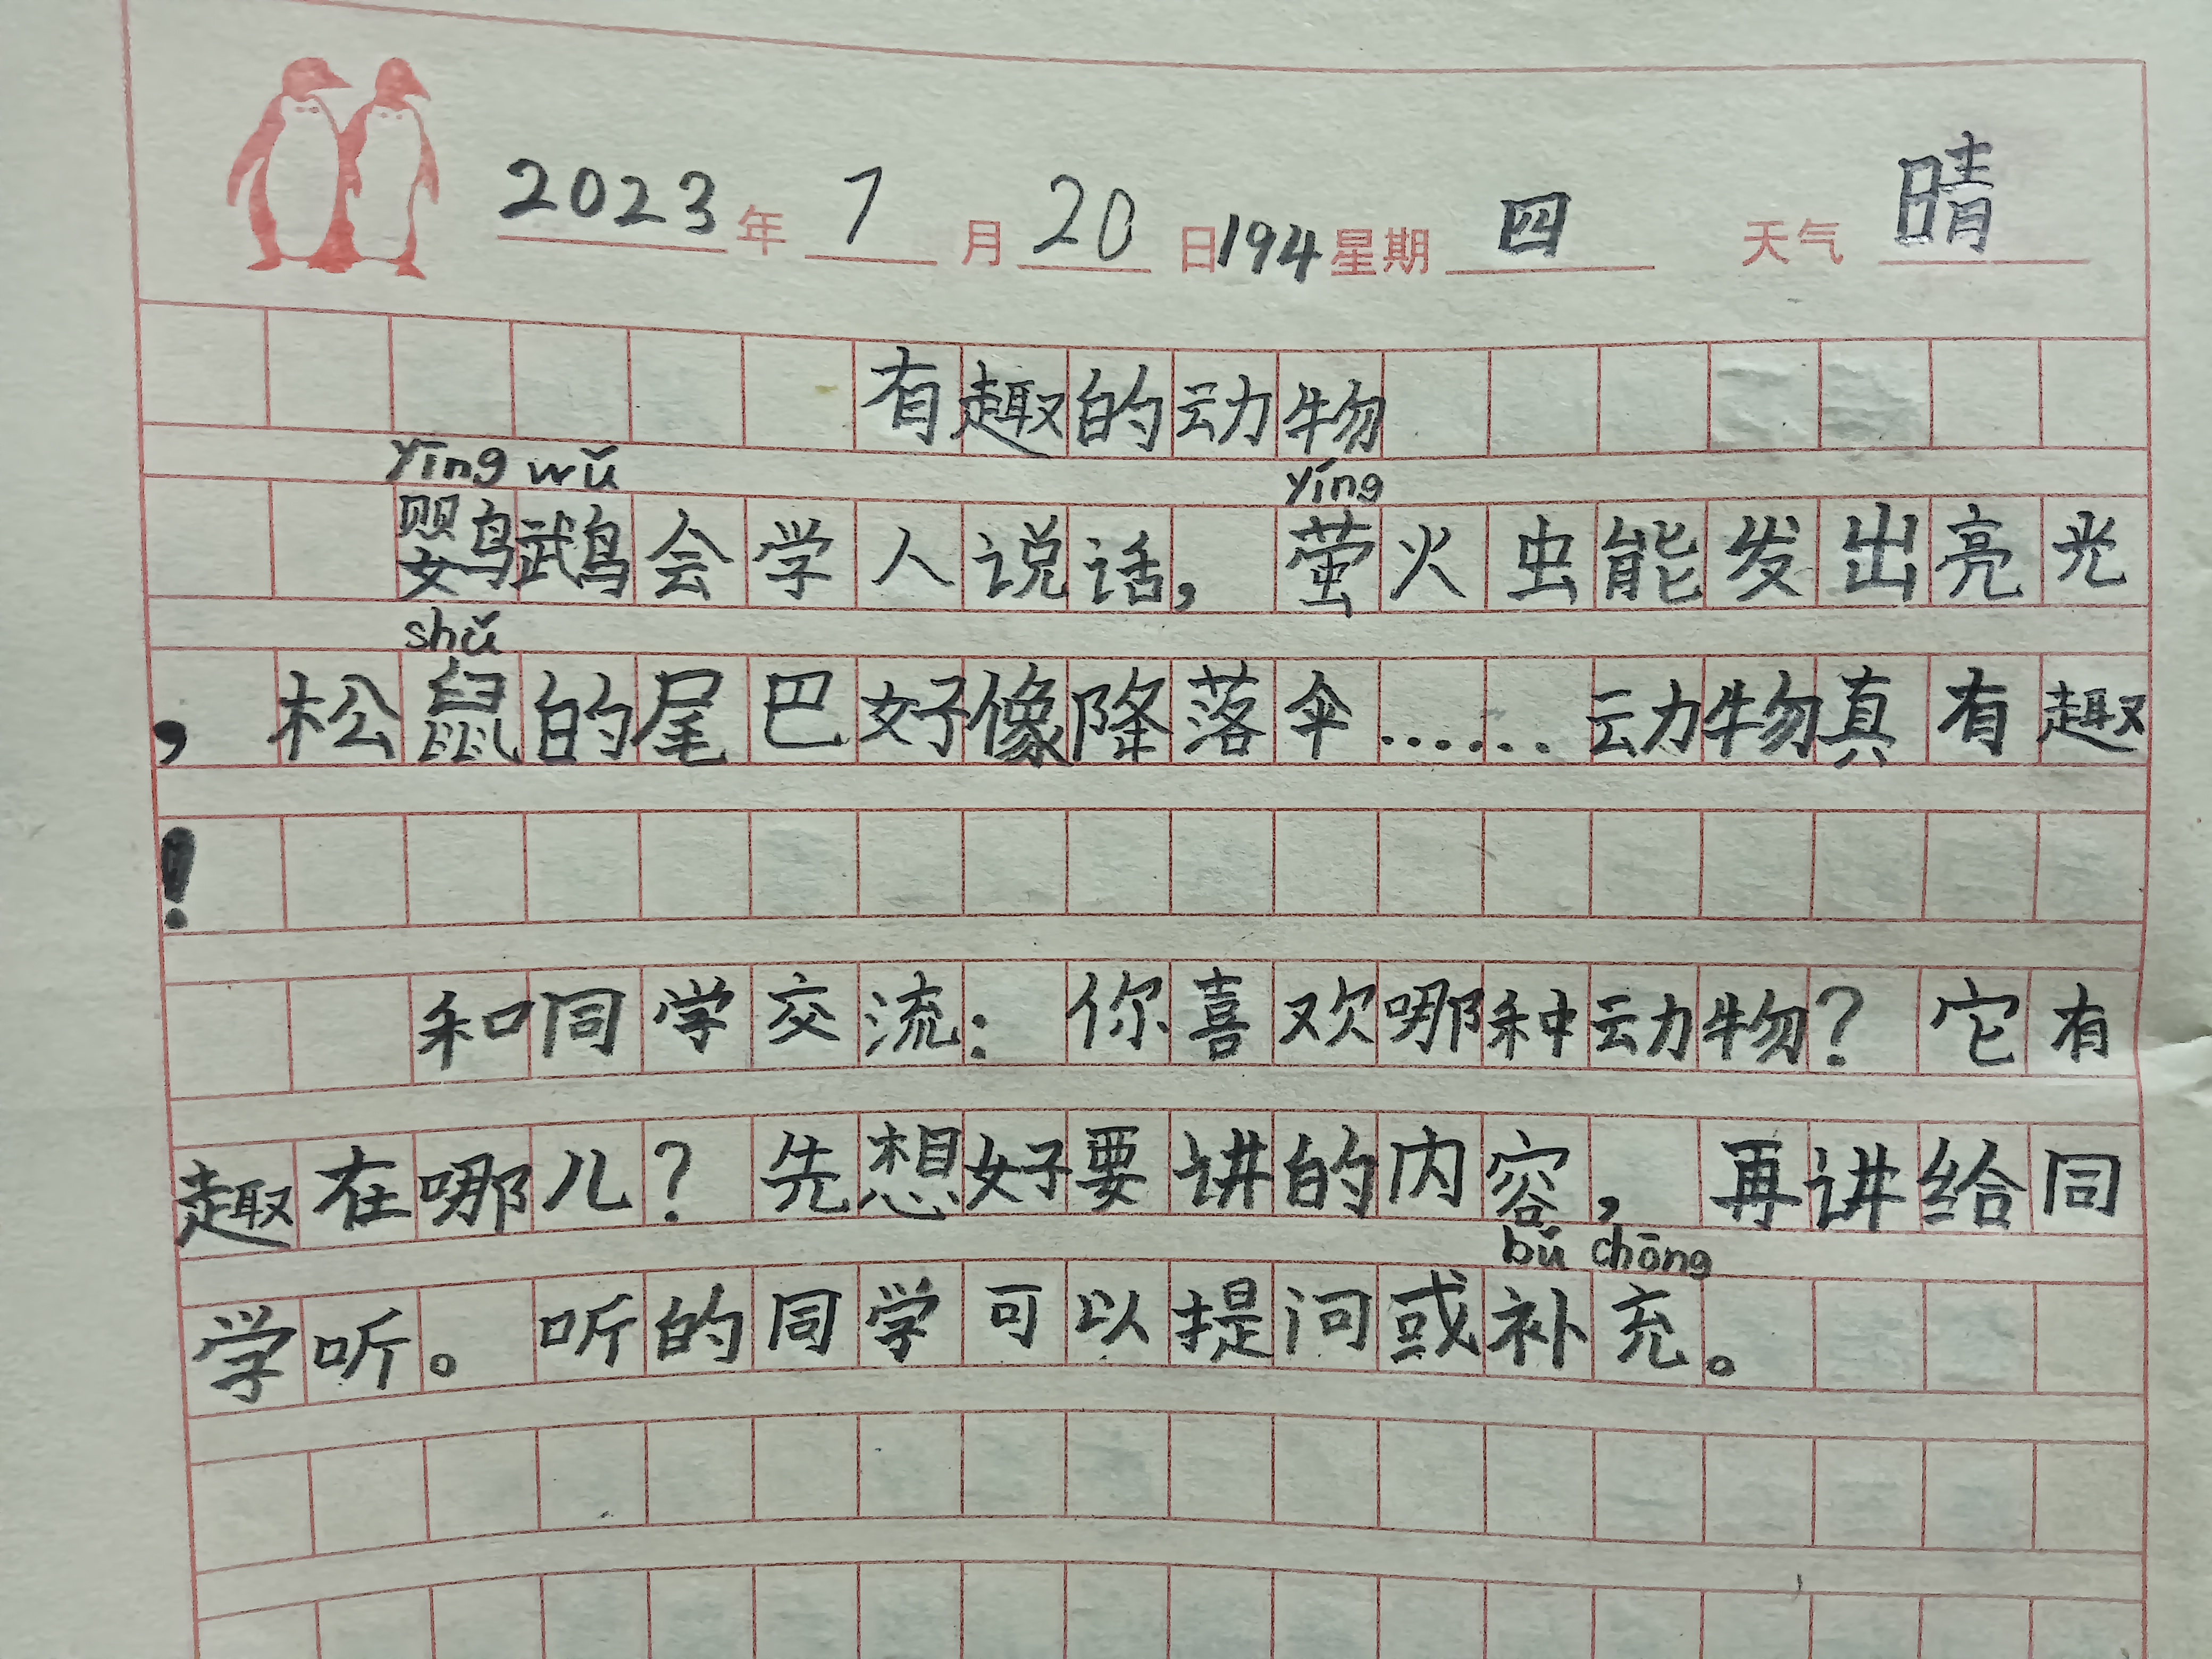 2023年7月20日194星期四 天气晴
有趣的动物
yīng wǔ yíng
鹦鹉会学人说话，萤火虫能发出亮光
shǔ
，松鼠的尾巴好像降落伞……动物真有趣
！
和同学交流：你喜欢哪种动物？它有
趣在哪儿？先想好要讲的内容，再讲给同
bǔ chōng
学听。听的同学可以提问或补充。